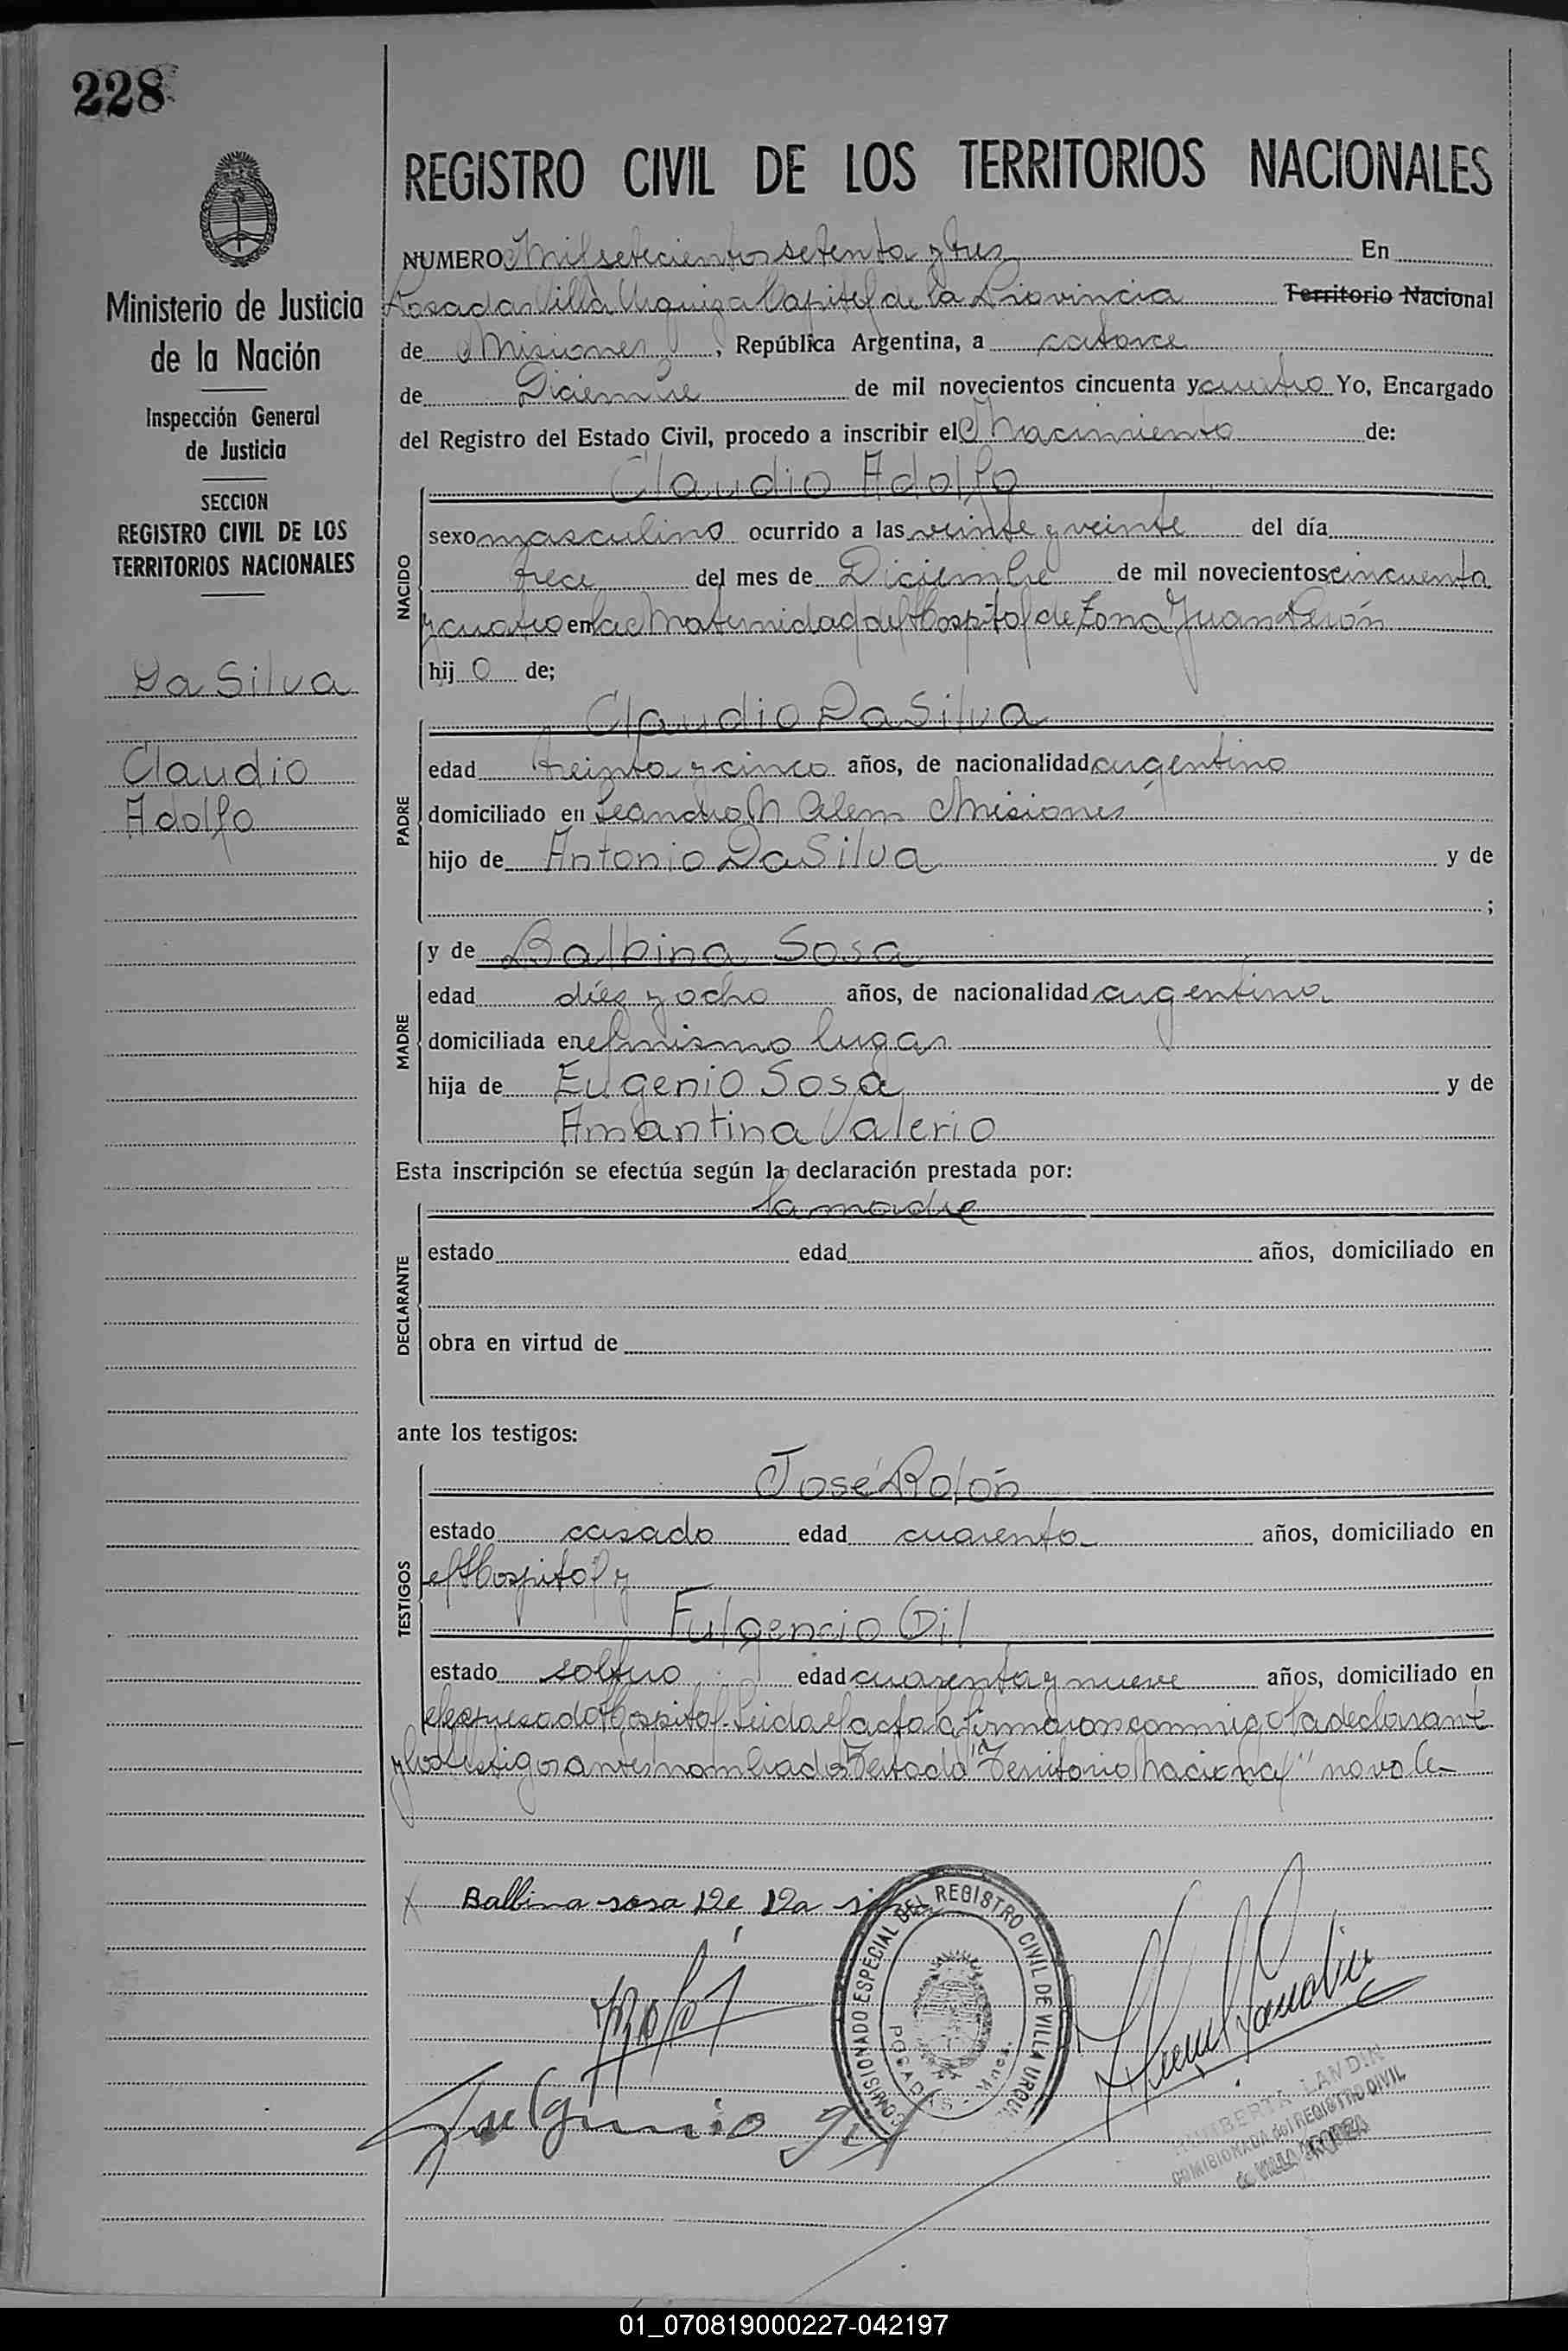 228
Ministerio de Justicia
de la Nación
Inspección General
de Justicia
SECCION
REGISTRO CIVIL DE LOS
TERRITORIOS NACIONALES
Da Silva
Claudio
Adolfo
REGISTRO CIVIL DE LOS TERRITORIOS NACIONALES
NUMERO Mil setecientos setenta y tres En
Posadas Villa Urquiza Capital de la Provincia Territorio Nacional
de Misiones, República Argentina, a catorce
de Diciembre de mil novecientos cincuenta y cuatro Yo, Encargado
del Registro del Estado Civil, procedo a inscribir el Nacimiento de:
NACIDO
Claudio Adolfo
sexo masculino ocurrido a las veinte y veinte del día
trece del mes de Diciembre de mil novecientos cincuenta
y cuatro en la Maternidad del Hospital de Zona Juan Perón
hij o de;
PADRE
Claudio Da Silva
edad treinta y cinco años, de nacionalidad argentino
domiciliado en Leandro N Alem Misiones
hijo de Antonio Da Silva y de
;
MADRE
y de Balbina Sosa
edad diez y ocho años, de nacionalidad argentina
domiciliada en el mismo lugar
hija de Eugenio Sosa y de
Amantina Valerio
Esta inscripción se efectúa según la declaración prestada por:
DECLARANTE
la madre
estado edad años, domiciliado en
obra en virtud de
ante los testigos:
TESTIGOS
José Rolón
estado casado edad cuarenta años, domiciliado en
el Hospital y
Fulgencio Gil
estado soltero edad cuarenta y nueve años, domiciliado en
el expresado Hospital. Leida el acta la firmaron conmigo la declarante
y los testigos antes nombrados Testado "Territorio Nacional" no vale
Balbina sosa De Da
COMISIONADO ESPECIAL DEL REGISTRO CIVIL DE VILLA URQUI
POSADAS - Mnes.
Fulgencio Gil
LANDIN
COMISIONADA del REGISTRO CIVIL
de VILLA URQUIZA
01_070819000227-042197